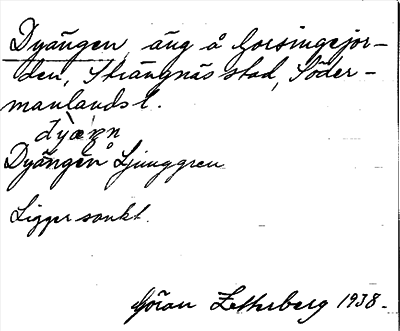 Dyängen, äng å Gorsingejor-
den, Strängnäs stad, Söder-
manlands l.
Dyängen Ljunggren
Ligger sankt.
Göran Zetterberg 1938.